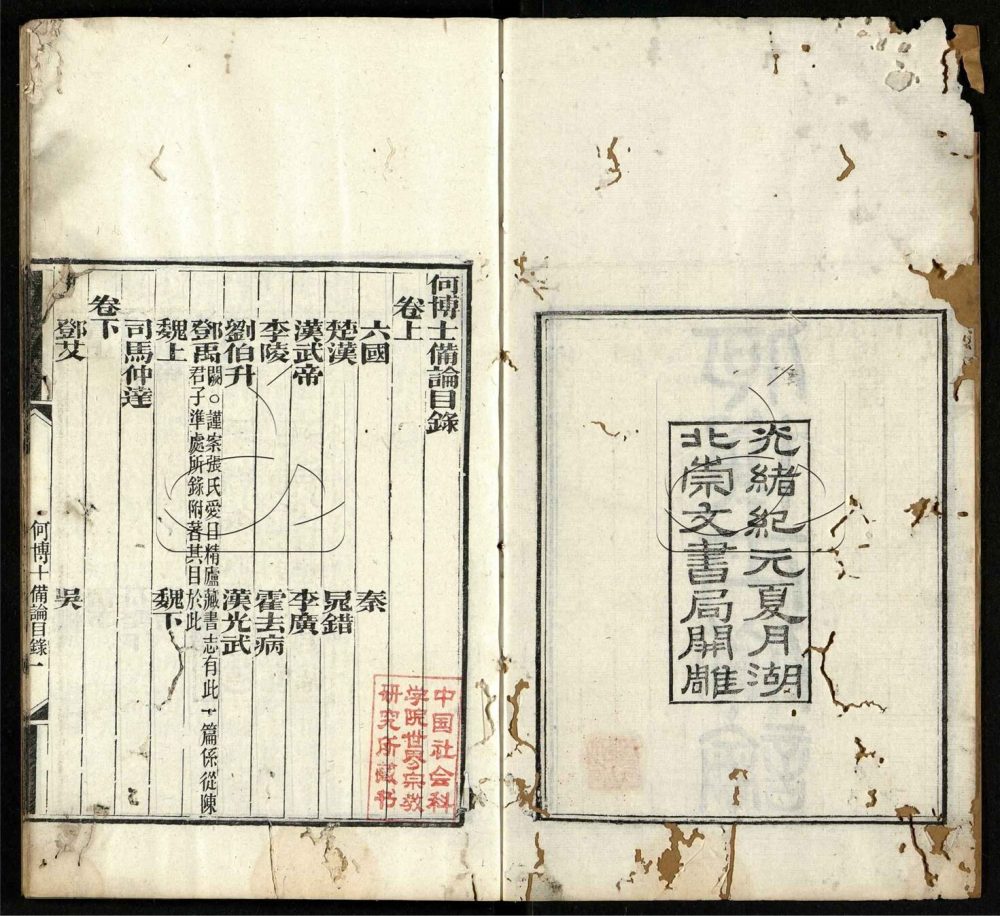 光緒紀元夏月湖
北崇文書局開雕
何博士備論目錄
卷上
六國　秦
楚漢　晁錯
漢武帝　李廣
李陵　霍去病
劉伯升　漢光武
鄧禹闕○謹案張氏愛日精廬藏書志有此一篇係從陳
君子準處所錄附著其目於此
魏上　魏下
司馬仲達
卷下
鄧艾　吳
何博士備論目錄　一
中国社会科
学院世界宗教
研究所藏书